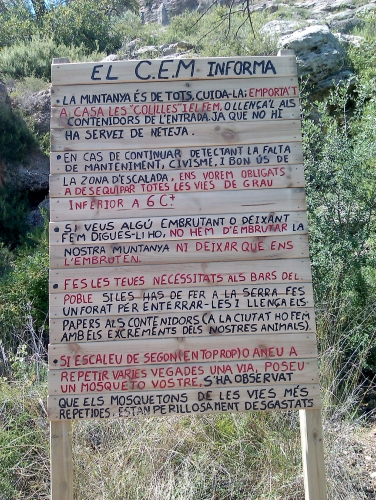 EL C.E.M INFORMA
• LA MUNTANYA ÉS DE TOTS, CUIDA-LA; EMPORTA'T
A CASA LES "COLILLES" I EL FEM, O LLENÇA'L ALS
CONTENIDORS DE L'ENTRADA JA QUE NO HI
HA SERVEI DE NETEJA.
• EN CAS DE CONTINUAR DETECTANT LA FALTA
DE MANTENIMENT, CIVISME, I BON ÚS DE
LA ZONA D'ESCALADA, ENS VOREM OBLIGATS
A DESEQUIPAR TOTES LES VIES DE GRAU
INFERIOR A 6C+
• SI VEUS ALGÚ EMBRUTANT O DEIXANT
FEM DIGUES-LI HO, NO HEM D'EMBRUTAR LA
NOSTRA MUNTANYA NI DEIXAR QUE ENS
L'EMBRUTEN.
• FES LES TEUES NECESSITATS ALS BARS DEL
POBLE SI LES HAS DE FER A LA SERRA FES
UN FORAT PER ENTERRAR-LES I LLENÇA ELS
PAPERS ALS CONTENIDORS (A LA CIUTAT HO FEM
AMB ELS EXCREMENTS DELS NOSTRES ANIMALS).
• SI ESCALEU DE SEGON (EN TOP ROP) O ANEU A
REPETIR VARIES VEGADES UNA VIA, POSEU
UN MOSQUETO VOSTRE, S'HA OBSERVAT
QUE ELS MOSQUETONS DE LES VIES MÉS
REPETIDES, ESTAN PERILLOSAMENT DESGASTATS